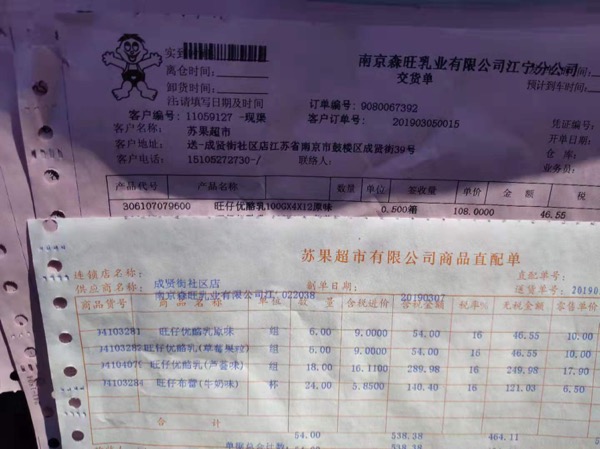 实到
离仓时间:
卸货时间:
注:请填写日期及时间
南京森旺乳业有限公司江宁分公司
交货单
预计到车时间:
订单编号: 9080067392
客户编号: 11059127 -现渠
客户订单号: 201903050015
凭证编号
客户名称: 苏果超市
开单日期:
客户地址: 送-成贤街社区店江苏省南京市鼓楼区成贤街39号
仓 库:
客户电话: 15105272730-/ 联系人:
业务员:
产品代号 产品名称 数量 单位 签收量 单价 金 额 税
306107079600 旺仔优酪乳100GX4X12原味 0.500箱 108.0000 46.55
苏果超市有限公司商品直配单
连锁店名称: 成贤街社区店
直配单号:
供应商名称: 南京森旺乳业有限公司江:022038 制单日期: 20190307 送货单号: 20190
商品货号 商 品 名 称 单位 数 量 含税进价 含税金额 税率% 无税金额 零售单价
94103281 旺仔优酪乳原味 组 6.00 9.0000 54.00 16 46.55 10.00
旺仔优酪乳(草莓果粒) 组 6.00 9.0000 54.00 16 46.55 10.00
旺仔优酪乳(芦荟味) 组 18.00 16.1100 289.98 16 249.98 17.90
94103284 旺仔布蕾(牛奶味) 杯 24.00 5.8500 140.40 16 121.03 6.50
合 计 54.00 538.38 464.11
单据总合计数: 538.38